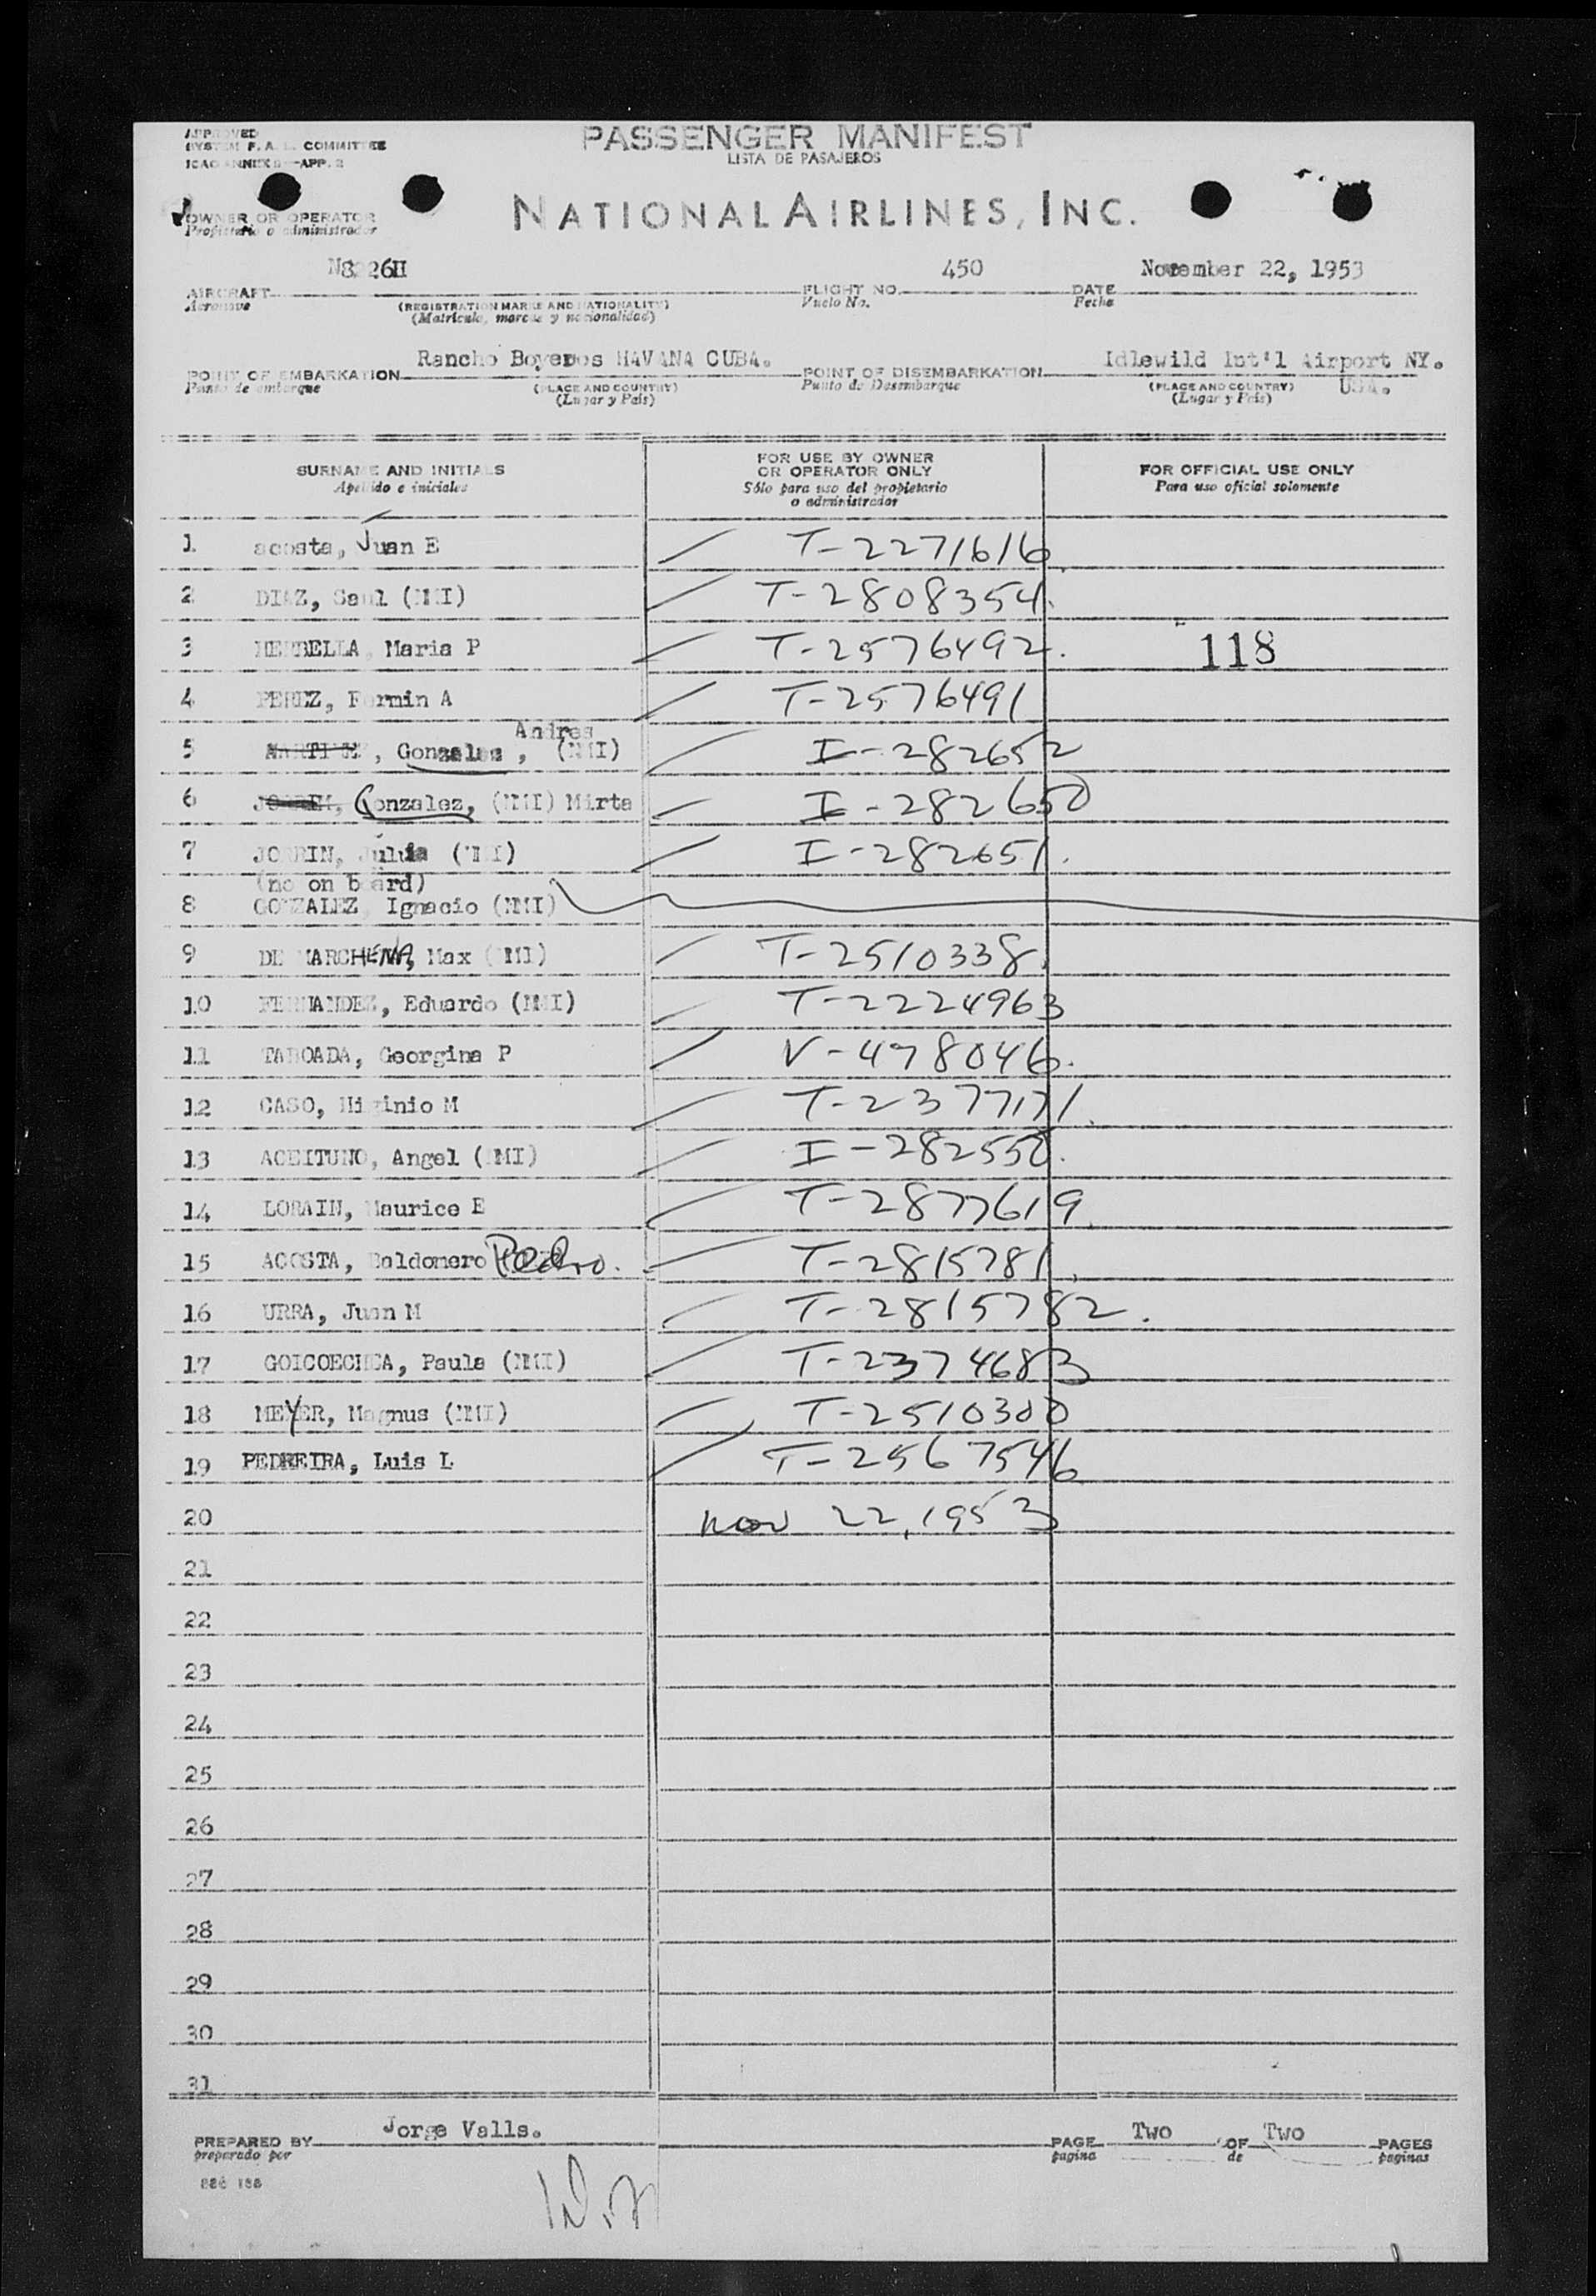 APPROVED
SYSTEM F. A. L. COMMITTEE
ICAO ANNEX 9—APP. 2
PASSENGER MANIFEST
LISTA DE PASAJEROS
OWNER OR OPERATOR
Propietario o administrador
NATIONAL AIRLINES, INC.
N8226H 450 November 22, 1953
AIRCRAFT FLIGHT NO. DATE
Aeronave (REGISTRATION MARKS AND NATIONALITY) Vuelo No. Fecha
(Matricula, marcas y nacionalidad)
Rancho Boyeros HAVANA CUBA. Idlewild Int'l Airport NY.
POINT OF EMBARKATION POINT OF DISEMBARKATION USA.
Punto de embarque (PLACE AND COUNTRY) Punto de Desembarque (PLACE AND COUNTRY)
(Lugar y País) (Lugar y País)
SURNAME AND INITIALS FOR USE BY OWNER OR OPERATOR ONLY FOR OFFICIAL USE ONLY
Apellido e iniciales Sólo para uso del propietario o administrador Para uso oficial solamente
1 acosta, Juan E T-2271616
2 DIAZ, Saul (NMI) T-2808354.
3 Maria P T-2576492. 118
4 PEREZ, Fermin A T-2576491
Andres
5 MARTINEZ, Gonzalez, (NMI) I-282652
6 Gonzalez, (NMI) Mirta I-282650
7 JORRIN, Julia (NMI) I-282651.
(no on board)
8 GONZALEZ, Ignacio (NMI)
9 DE MARCHENA, Max (NMI) T-2510338.
10 FERNANDEZ, Eduardo (NMI) T-2224963
11 TABOADA, Georgina P V-478046.
12 CASO, Higinio M T-2377171.
13 ACEITUNO, Angel (NMI) I-282550.
14 LORAIN, Maurice E T-2877619.
15 ACOSTA, Baldomero Pedro. T-2815781.
16 URRA, Juan M T-2815782.
17 GOICOECHEA, Paula (NMI) T-2374683
18 MEYER, Magnus (NMI) T-2510300
19 PEDREIRA, Luis L T-2567546
20 Nov 22, 1953
21
22
23
24
25
26
27
28
29
30
31
Jorge Valls. Two Two
PREPARED BY PAGE OF PAGES
preparado por pagina de paginas